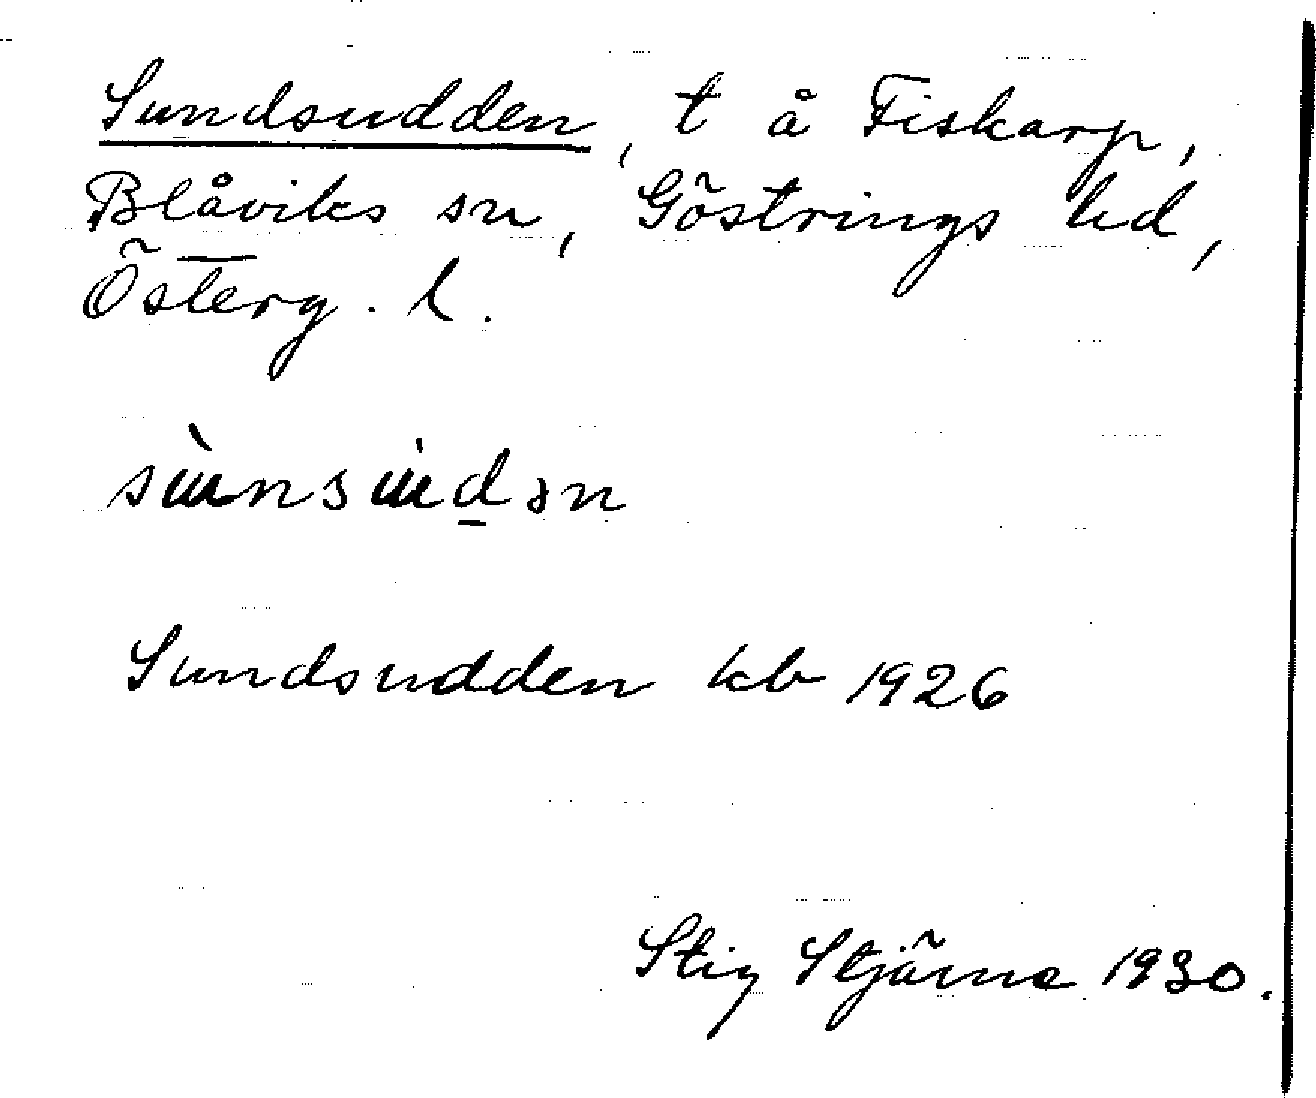 Sundsudden, t å Fiskarp,
Blåviks sn, Göstrings hd,
Österg. l.
Sundsudden kb 1926
Stig Stjärna 1930.